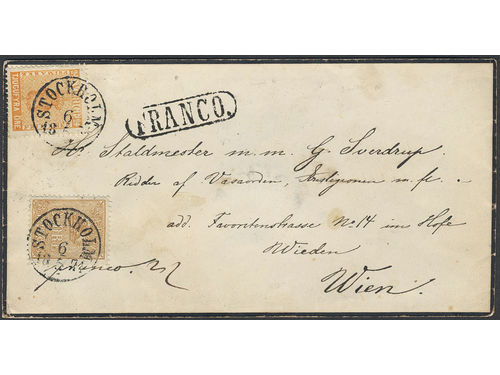 STOCKHOLM
6
FRANCO.
TJUGUFYRA ÖRE
Hr Staldmester m. m. G. Sverdrup
Ridder af Vasaorden, m. fl.
add. Favoritenstrasse No 14 im Hofe
Wieden
Wien.
STOCKHOLM
6
franco.